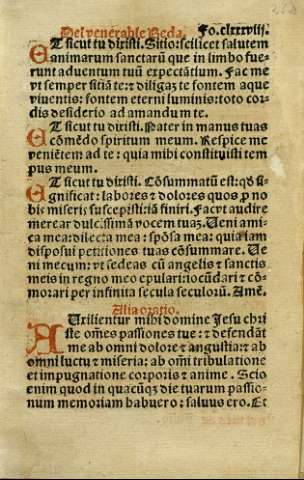 Del venerable Beda. Fo.clxxxviij.
ET sicut tu dixisti. Sitio: scilicet salutem
animarum sanctarũ que in limbo fue-
runt aduentum tuũ expectãtium. Fac me
vt semper sitiã te: ⁊ diligaz te fontem aque
viuentis: fontem eterni luminis: toto cor-
dis desiderio ad amandum te.
ET sicut tu dixisti. Pater in manus tuas
cõmẽdo spiritum meum. Respice me
veniẽtem ad te: quia mihi constituisti tem
pus meum.
ET sicut tu dixisti. Cõsummatũ est: qđ si-
gnificat: labores ⁊ dolores quos ꝓ no
bis miseris suscepisti iã finiri. Fac vt audire
merear dulcissimã vocem tuaz. Veni ami-
ca mea: dilecta mea: spõsa mea: quia iam
disposui petitiones tuas cõsummare. Ve
ni mecum: vt sedeas cũ angelis ⁊ sanctis
meis in regno meo epulari: iocũdari ⁊ cõ-
morari per infinita secula seculorũ. Amẽ.
Alia oratio.
AUxilientur mihi domine Jesu chri
ste om̃es passiones tue: ⁊ defendãt
me ab omni dolore ⁊ angustia: ⁊ ab
omni luctu ⁊ miseria: ab om̃i tribulatione
et impugnatione corporis ⁊ anime. Scio
enim quod in quacũqz die tuarum passio-
num memoriam habuero: saluus ero. Et